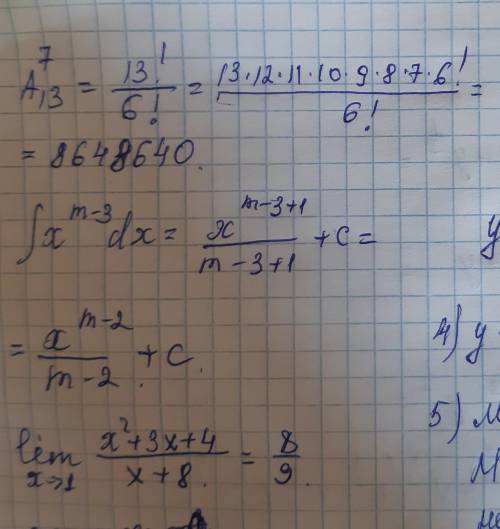 A₁₃⁷ = 13!/6! = 13·12·11·10·9·8·7·6!/6! =
= 8648640.
∫x^(m-3) dx = x^(m-3+1)/(m-3+1) + C =
= x^(m-2)/(m-2) + C.
lim x→1 (x²+3x+4)/(x+8) = 8/9.
y
4) y
5) М
М